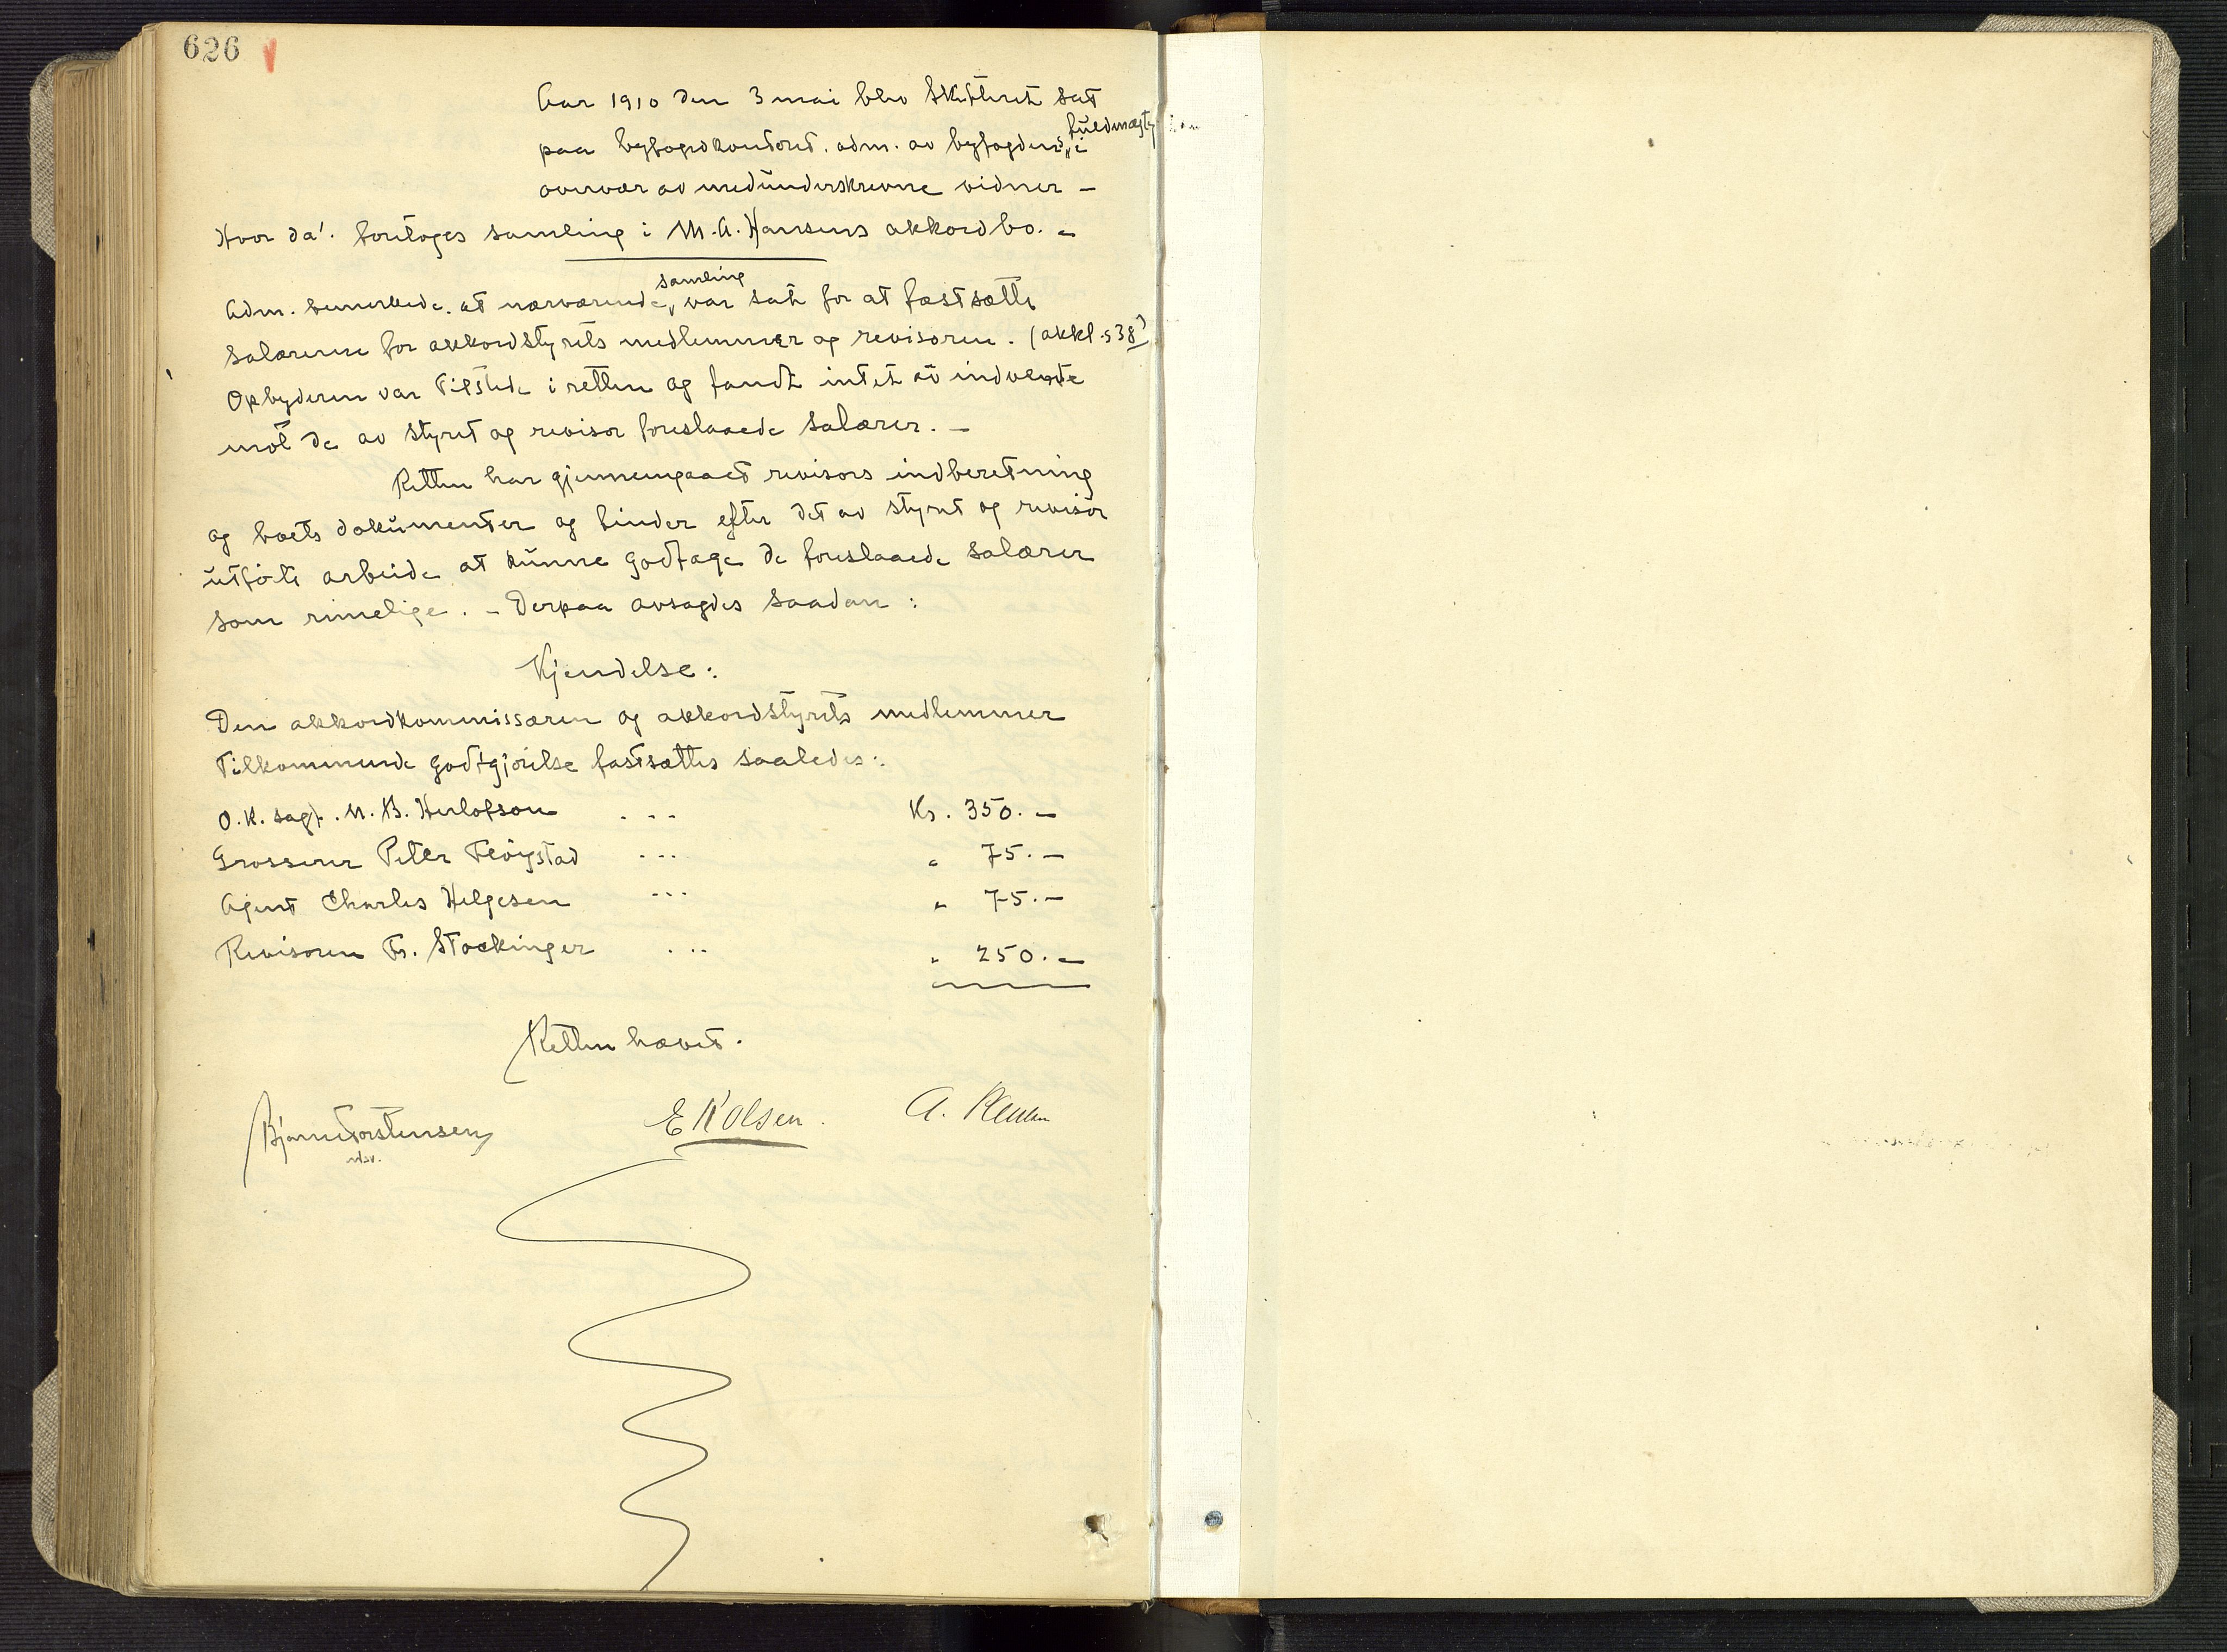 626
Aar 1910 den 3 mai blev Skifteret sat
paa byfogedkontoret. adm. av byfogdens fuldmægtig i
overvær av medunderskrevne vidner –
Hvor da! foretoges samling i M. A. Hansens akkordbo. –
Adm. bemerkede. at nærværende samling var sat for at fastsætte
salærerne for akkordstyrets medlemmer og revisoren. (akkl. § 38)
Opbyderen var tilstede i retten og fandt intet at indvende
mot de av styret og revisor foreslaaede salærer. –
Retten har gjennemgaaet revisors indberetning
og boets dokumenter og finder efter det av styret og revisor
utførte arbeide at kunne godtage de foreslaaede salærer
som rimelige. – Derpaa avsagdes saadan:
Kjendelse:
Den akkordkommissæren og akkordstyrets medlemmer
tilkommende godtgjørelse fastsættes saaledes:
O.R. sagf. N. B. Herlofson ... Kr. 350. –
Grosserer Peter Fløystad ... " 75. –
Agent Charles Helgesen ... " 75. –
Revisoren Fr. Stockinger ... " 250. –
Retten hævet.
Bjarne Torstensen E K Olsen. A.